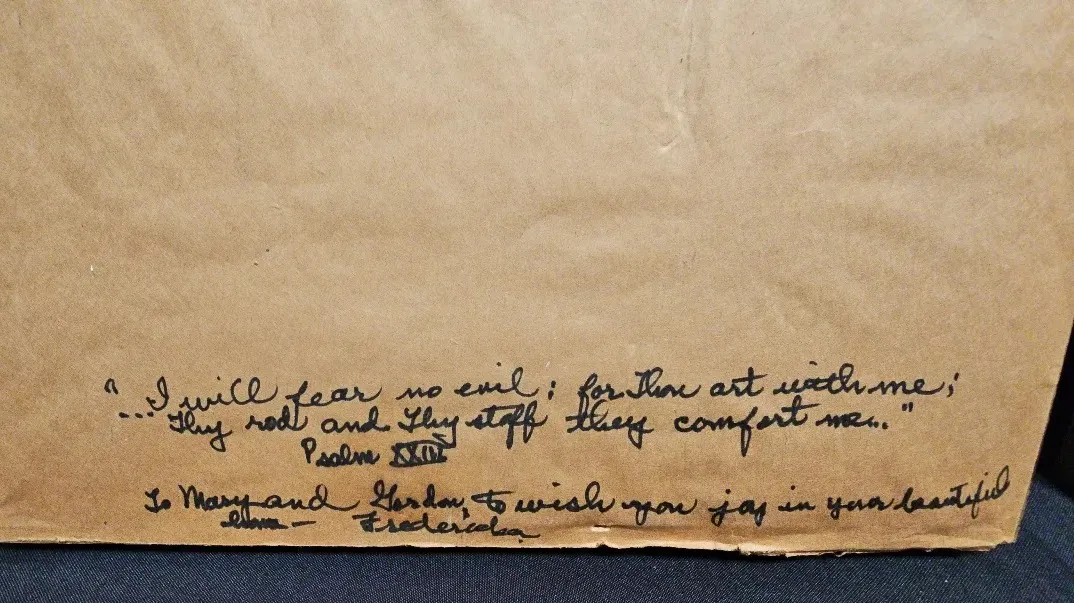 "...I will fear no evil; for Thou art with me;
Thy rod and Thy staff they comfort me..."
Psalm XXIII
To Mary and Gordon, to wish you joy in your beautiful
home — Fredericka